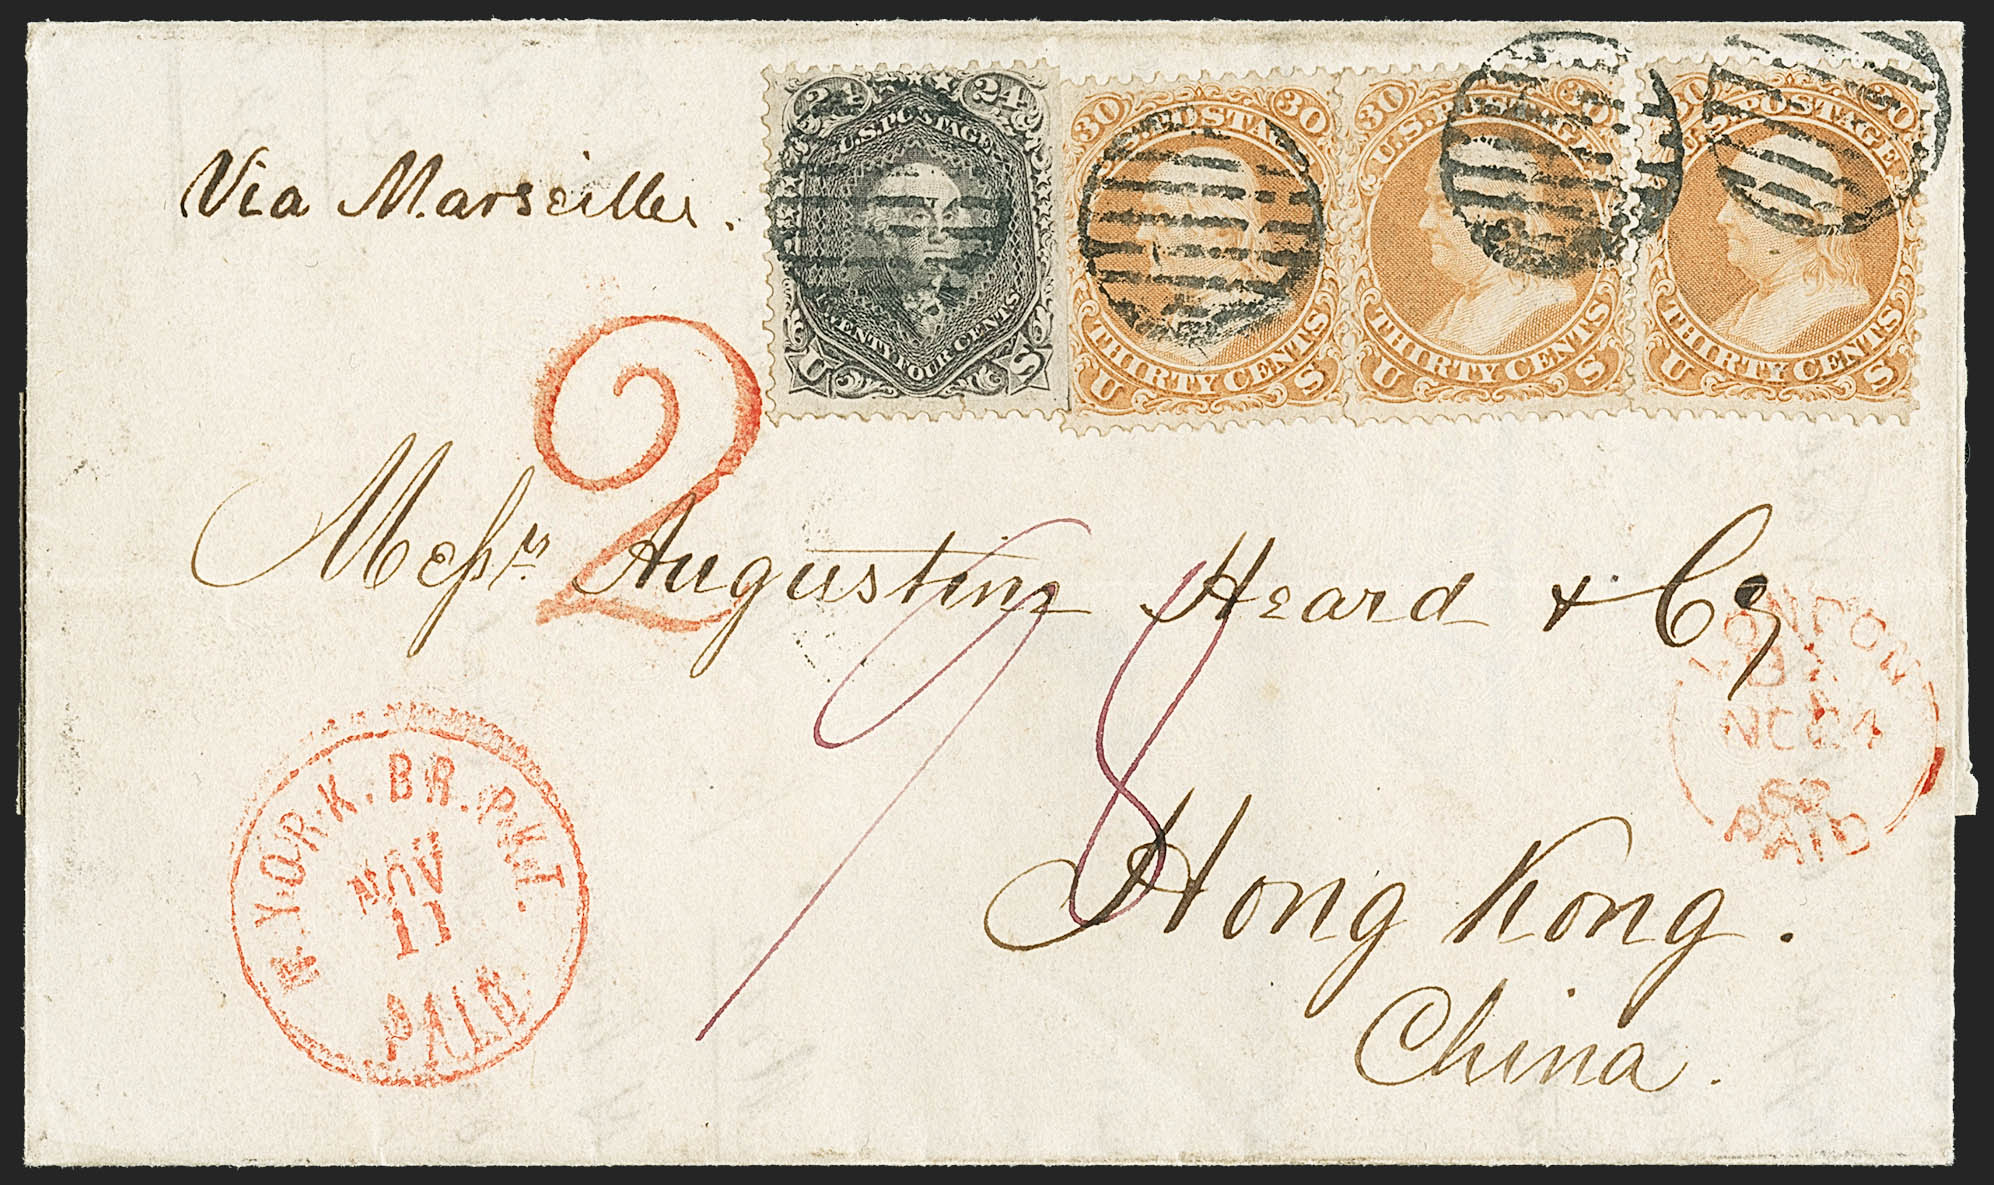 24 24
U.S.POSTAGE
TWENTY FOUR CENTS
U S
30 30
U.S.POSTAGE
THIRTY CENTS
U S
30 30
U.S.POSTAGE
THIRTY CENTS
U S
30 30
U.S.POSTAGE
THIRTY CENTS
U S
Via Marseilles.
2
Messrs Augustine Heard & Co
98
Hong Kong.
China.
N.YORK.BR.PKT.
NOV
11
PAID
LONDON
NO 24
PAID